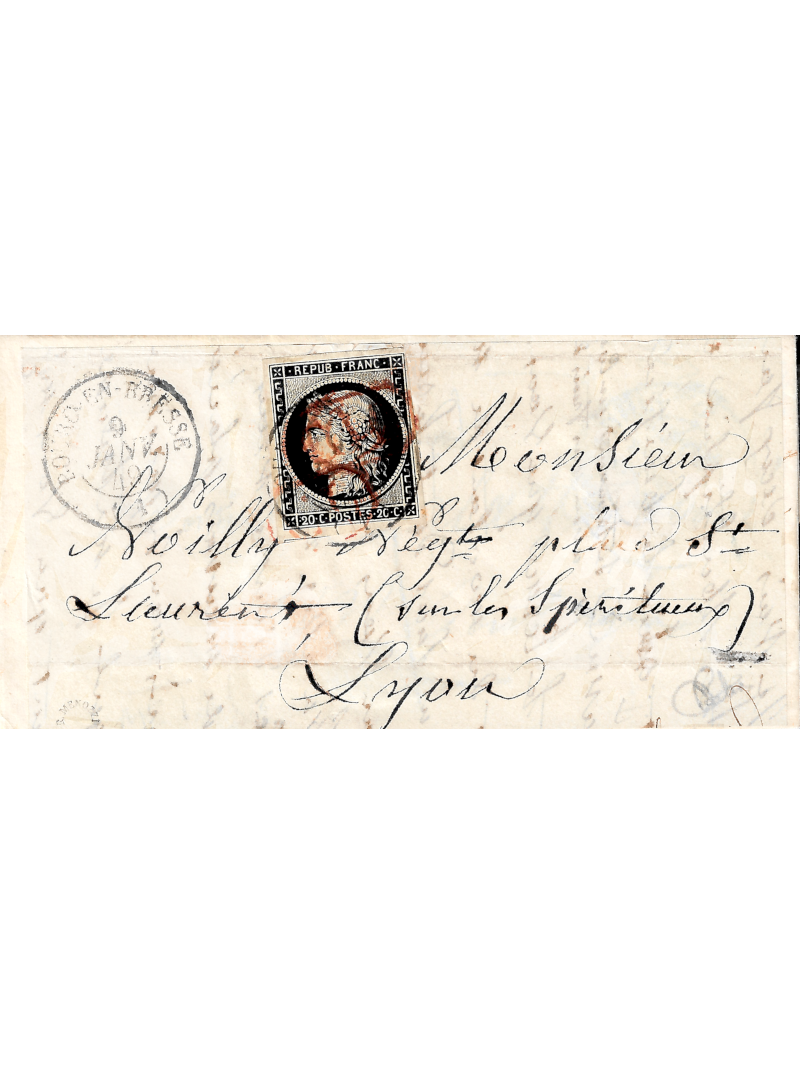 BOURG-EN-BRESSE
9
JANV.
49
(1)
REPUB · FRANC ·
20 · C · POSTES · 20 · C ·
Monsieur
Noilly Négt place St
Laurent (sur les Spiritueux)
Lyon